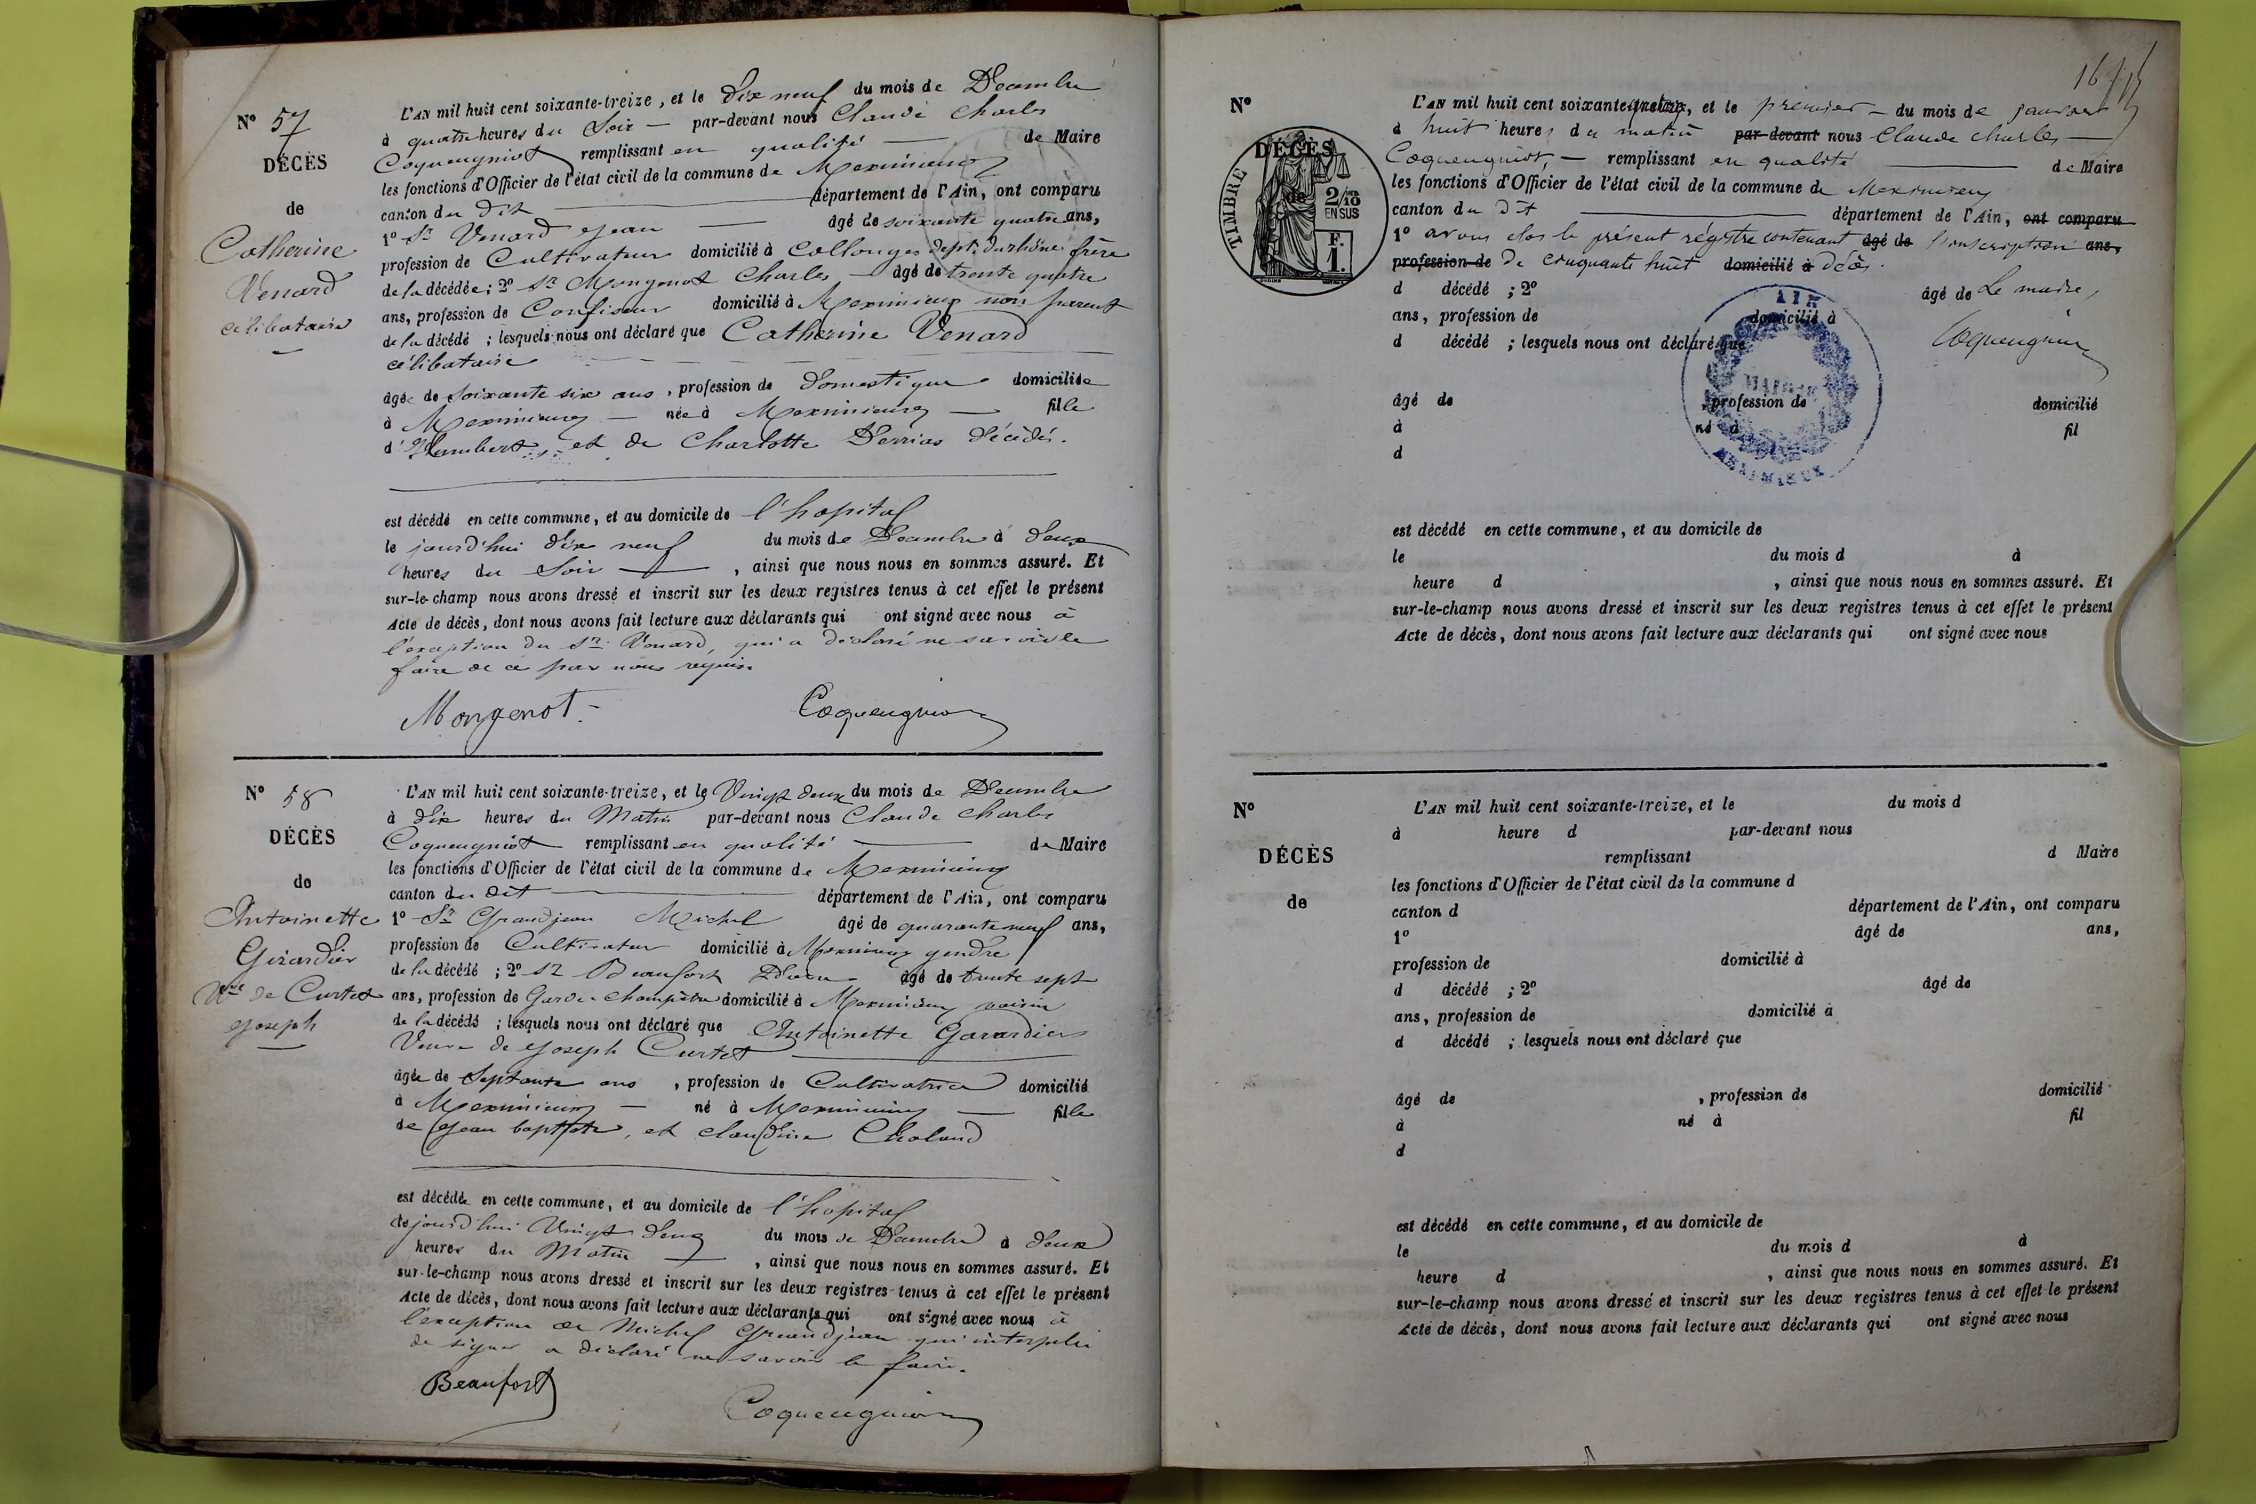 N° 57
DÉCÈS
de
Catherine
Venard
célibataire
L'AN mil huit cent soixante-treize, et le Dix neuf du mois de Décembre
à quatre heures du Soir — par-devant nous Claude Charles
Coqueugniot remplissant en qualité — de Maire
les fonctions d'Officier de l'état civil de la commune de Meximieux
canton du dit — département de l'Ain, ont comparu
1° Sr Venard Jean — âgé de soixante quatre ans,
profession de Cultivateur domicilié à Collonges dept. du rhône frère
de la décédée ; 2° Sr Mongenot Charles — âgé de trente quatre
ans, profession de Confiseur domicilié à Meximieux non parent
de la décédé ; lesquels nous ont déclaré que Catherine Venard
célibataire —
âgée de Soixante six ans, profession de domestique domiciliée
à Meximieux — née à Meximieux — fille
d'Humbert et de Charlotte Derrias décédés.
est décédé en cette commune, et au domicile de l'hopital
le jourd'hui dix neuf du mois de Décembre à deux
heures du Soir —, ainsi que nous nous en sommes assuré. Et
sur-le-champ nous avons dressé et inscrit sur les deux registres tenus à cet effet le présent
Acte de décès, dont nous avons fait lecture aux déclarants qui ont signé avec nous à
l'exception du Sr Venard, qui a déclaré ne savoir le
faire de ce par nous requis
Mongenot Coqueugniot
N° 58
DÉCÈS
de
Antoinette
Girardier
Vve de Curtet
Joseph
L'AN mil huit cent soixante-treize, et le Vingt deux du mois de Décembre
à dix heures du Matin par-devant nous Claude Charles
Coqueugniot remplissant en qualité — de Maire
les fonctions d'Officier de l'état civil de la commune de Meximieux
canton du dit — département de l'Ain, ont comparu
1° Sr Grandjean Michel âgé de quarante neuf ans,
profession de Cultivateur domicilié à Meximieux gendre
de la décédé ; 2° Sr Beaufort âgé de trente sept
ans, profession de Garde Champêtre domicilié à Meximieux voisin
de la décédé ; lesquels nous ont déclaré que Antoinette Garardier
Veuve de Joseph Curtet —
âgée de Septante ans, profession de Cultivatrice domicilié
à Meximieux — né à Meximieux — fille
de Jean baptiste, et claudine Choland
est décédée en cette commune, et au domicile de l'hopital
le jourd'hui Vingt deux du mois de Décembre à deux
heures du Matin —, ainsi que nous nous en sommes assuré. Et
sur-le-champ nous avons dressé et inscrit sur les deux registres tenus à cet effet le présent
Acte de décès, dont nous avons fait lecture aux déclarants qui ont signé avec nous à
l'exception de Michel Grandjean qui interpelé
de signer a déclaré ne savoir le faire.
Beaufort
Coqueugniot
N°
DÉCÈS
de
TIMBRE
2/10
EN SUS
F.
1.
L'AN mil huit cent soixante et le premier — du mois de janvier
à huit heures du matin par-devant nous Claude Charles —
Coqueugniot, — remplissant en qualité — de Maire
les fonctions d'Officier de l'état civil de la commune de Meximieux
canton du Dit — département de l'Ain, ont comparu
1° avons clos le présent régistre contenant âgé de l'inscription ans,
profession de De Cinquante huit domicilié à décès.
d décédé ; 2° âgé de Le maire,
ans, profession de domicilié à
d décédé ; lesquels nous ont déclaré que Coqueugniot
AIN
MAIRIE
MEXIMIEUX
âgé de , profession de domicilié
à né à fil
d
est décédé en cette commune, et au domicile de
le du mois d à
heure d , ainsi que nous nous en sommes assuré. Et
sur-le-champ nous avons dressé et inscrit sur les deux registres tenus à cet effet le présent
Acte de décès, dont nous avons fait lecture aux déclarants qui ont signé avec nous
N°
DÉCÈS
de
L'AN mil huit cent soixante-treize, et le du mois d
à heure d par-devant nous
remplissant d Maire
les fonctions d'Officier de l'état civil de la commune d
canton d département de l'Ain, ont comparu
1° âgé de ans,
profession de domicilié à
d décédé ; 2° âgé de
ans, profession de domicilié à
d décédé ; lesquels nous ont déclaré que
âgé de , profession de domicilié
à né à fil
d
est décédé en cette commune, et au domicile de
le du mois d à
heure d , ainsi que nous nous en sommes assuré. Et
sur-le-champ nous avons dressé et inscrit sur les deux registres tenus à cet effet le présent
Acte de décès, dont nous avons fait lecture aux déclarants qui ont signé avec nous